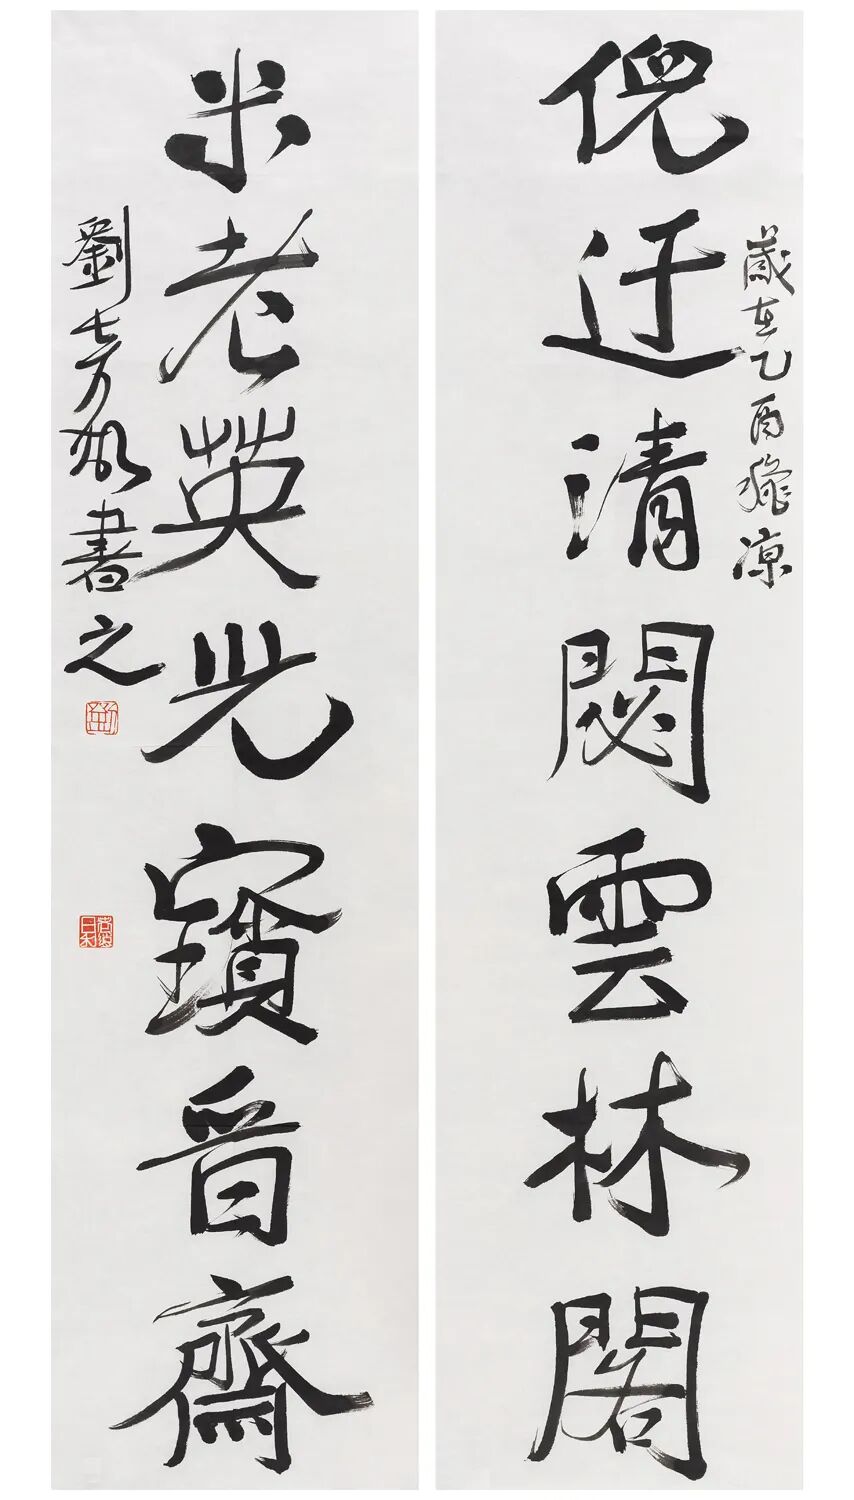 倪迂清閟雲林閣
歲在乙酉穐凉
米老英光寶晉齋
劉 書之